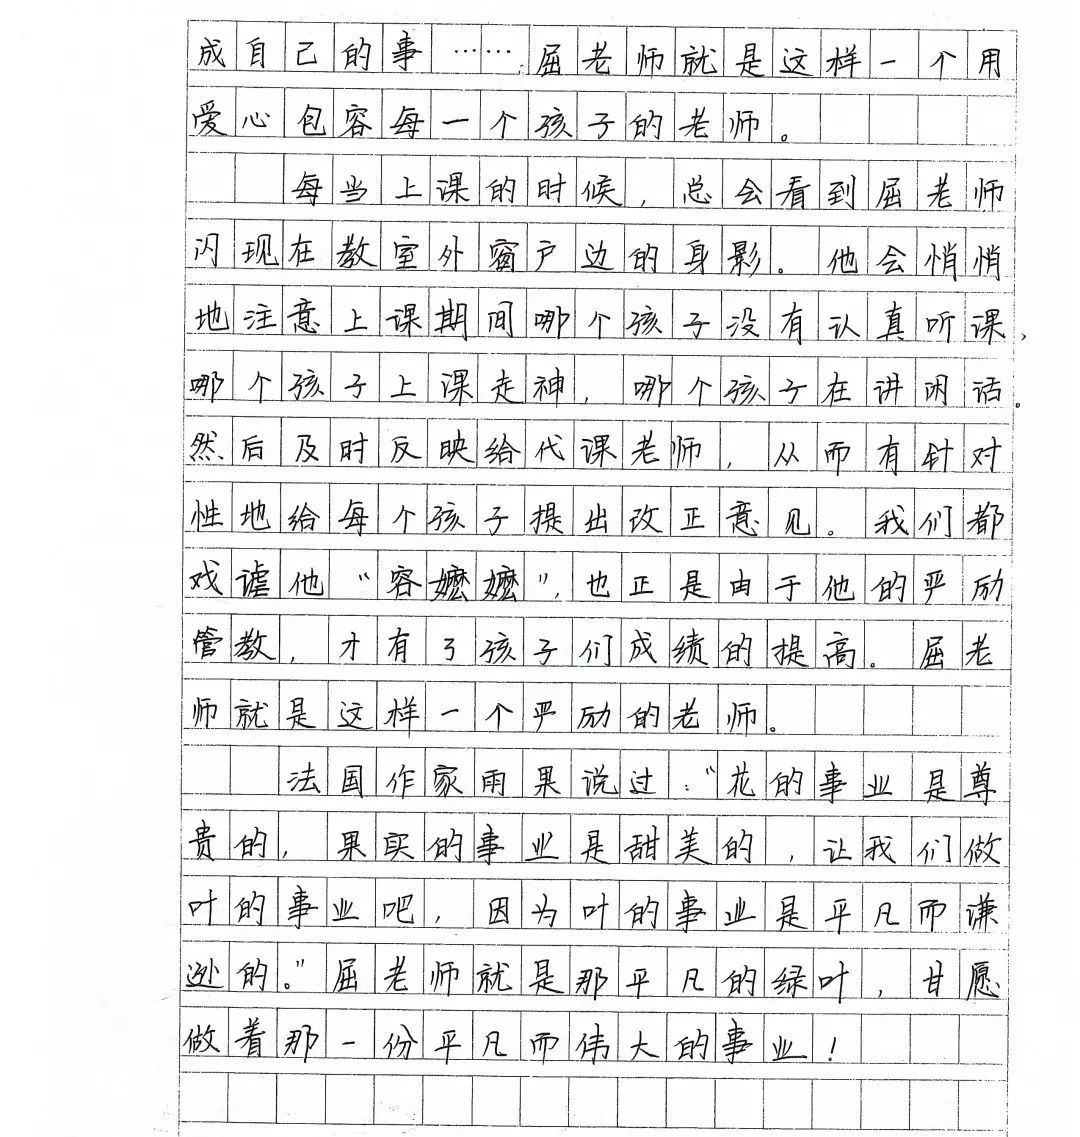 成自己的事……屈老师就是这样一个用
爱心包容每一个孩子的老师。
每当上课的时候，总会看到屈老师
闪现在教室外窗户边的身影。他会悄悄
地注意上课期间哪个孩子没有认真听课，
哪个孩子上课走神，哪个孩子在讲闲话。
然后及时反映给代课老师，从而有针对
性地给每个孩子提出改正意见。我们都
戏谑他“容嬷嬷”，也正是由于他的严励
管教，才有了孩子们成绩的提高。屈老
师就是这样一个严励的老师。
法国作家雨果说过：“花的事业是尊
贵的，果实的事业是甜美的，让我们做
叶的事业吧，因为叶的事业是平凡而谦
逊的。”屈老师就是那平凡的绿叶，甘愿
做着那一份平凡而伟大的事业！